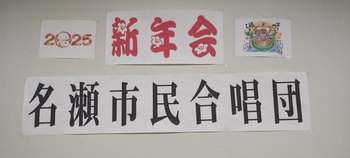 2025
新年会
名瀬市民合唱団